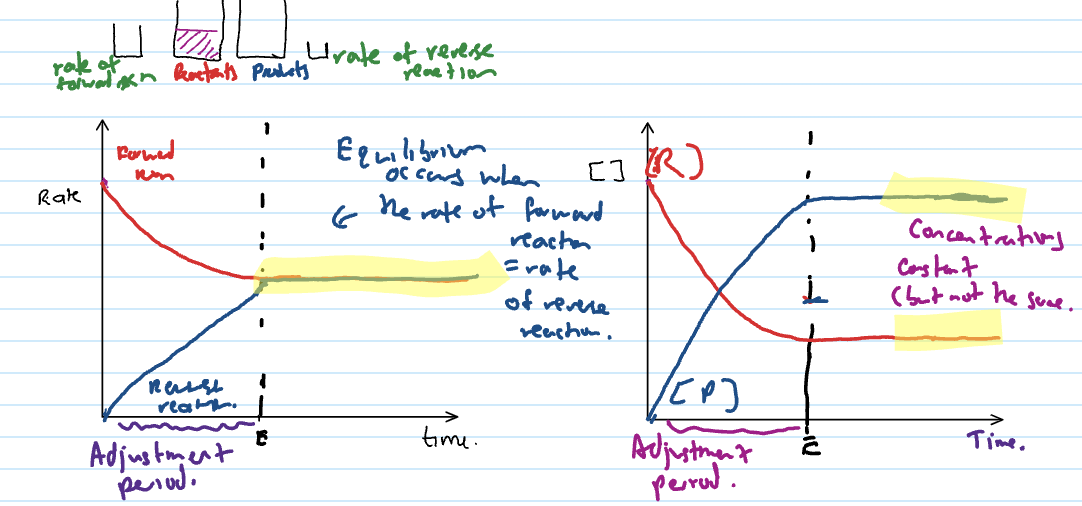 rate of
forward rxn
Reactants
Products
rate of reverse
reaction
Rate
Forward
rxn
Equilibrium
occurs when
the rate of forward
reaction
= rate
of reverse
reaction.
Reverse
reaction.
E
time.
Adjustment
period.
[ ]
[R]
[P]
Concentrations
constant
(but not the same.
E
Time.
Adjustment
period.